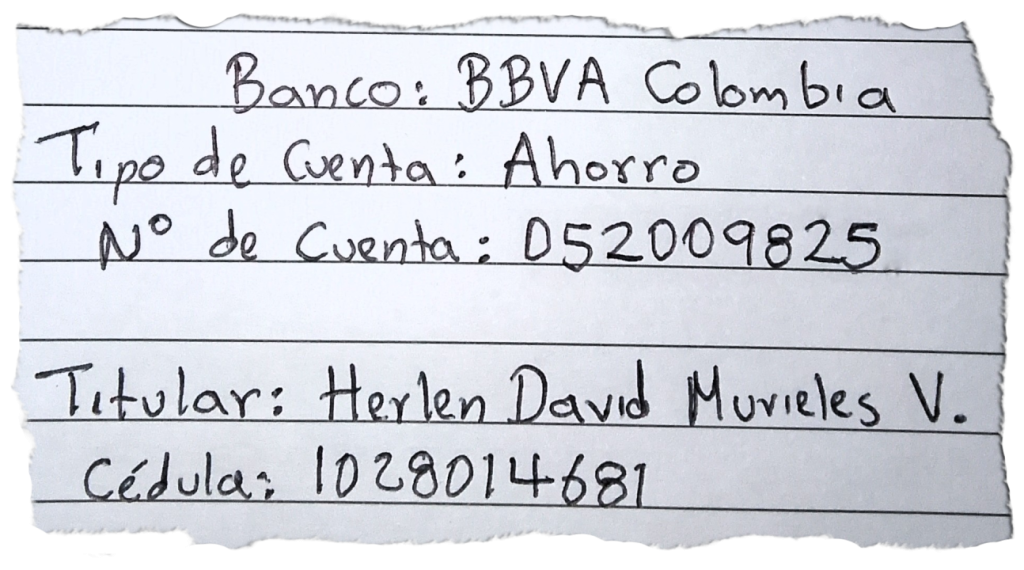 Banco: BBVA Colombia
Tipo de Cuenta: Ahorro
N° de Cuenta: 052009825
Titular: Herlen David Murieles V.
Cédula: 1028014681